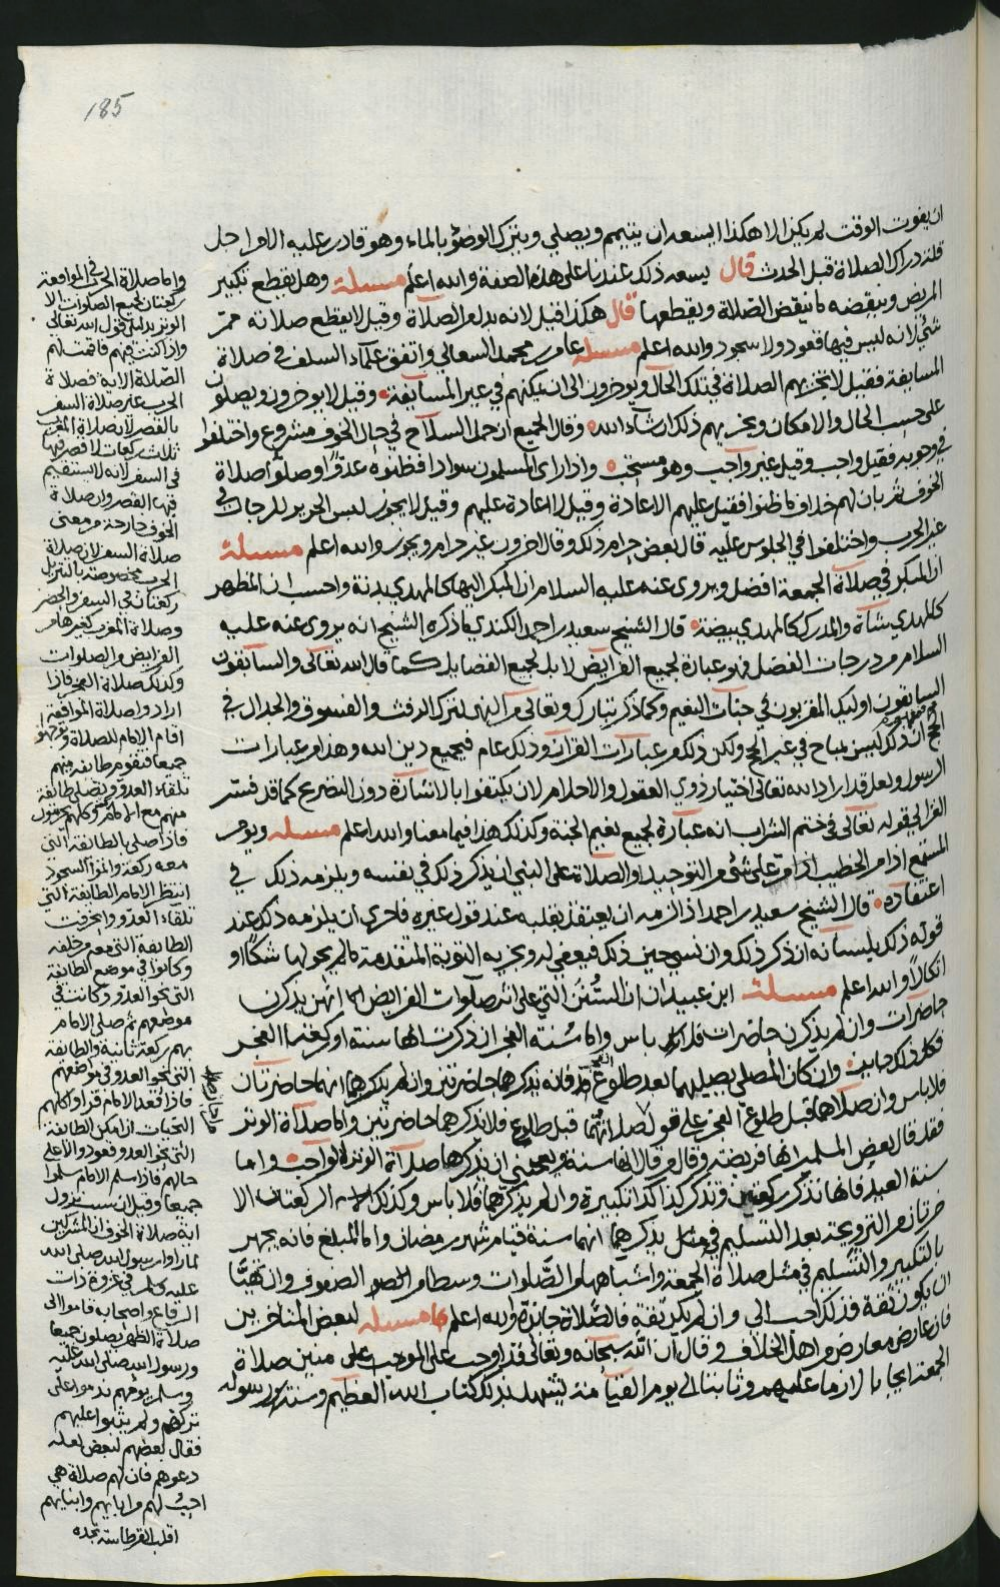 185
ان يفوت الوقت لم يكن الا هكذا ايسعه ان يتيمم ويصلي ويترك الوضؤ بالماء وهو قادر عليه الا من اجل
قلة دراك الصلاة قبل الحدث قال يسعه ذلك عندنا على هذه الصفة والله اعلم مسئلة وهل يقطع تكبير
المريض وينقضه ما ينقض الصلاة ويقطعها قال هكذا قيل لانه بدل عن الصلاة وقيل لا يقطع صلاته ممر
شئ لانه ليس فيها قعود ولا سجود والله اعلم مسئلة عامر بن محمد السعالي واتفق علماء السلف في صلاة
المسايفة فقيل لا تجزيهم الصلاة في تلك الحال ويوخرون الى ان يمكنهم في غير المسايفة وقيل لا يوخرون ويصلون
على حسب الحال والامكان ويجزيهم ذلك ان شآء الله وقال الجميع ان حمل السلاح في حال الخوف مشروع واختلفوا
في وجوبه فقيل واجب وقيل غير واجب وهو مستحب واذا راى المسلمون سوادا فظنوه عدوًا وصلوا صلاة
الخوف ثم بان لهم خلاف ما ظنوا فقيل عليهم الاعادة وقيل لا اعادة عليهم وقيل لا يجوز لبس الحرير للرجال في
غير الحرب واختلفوا في الجلوس عليه قال بعض حرام ذلك وقال اخرون غير حرام ويجوز والله اعلم مسئلة
ان المبكر في صلاة الجمعة افضل ويروى عنه عليه السلام ان المبكر اليها كالمهدي بدنة واحسب ان المظهر
كالمهدي شاة والمدرك كالمهدي بيضة قال الشيخ سعيد بن احمد الكندي ما ذكره الشيخ انه يروى عنه عليه
السلام من درجات الفضل فهو عبارة لجميع الفرايض لا بل لجميع الفضايل كما قال الله تعالى والسابقون
السابقون اوليك المقربون في جنات النعيم وكما ذكر تبارك وتعالى من النهي لترك الرفث والفسوق والجدال في
الحج ان ذلك ليس بمباح في غير الحج ولكن ذلك من عبارات القرآن وذلك عام في جميع دين الله وهذا من عبارات
الرسول ولعل قد اراد الله تعالى اختيار ذوي العقول والاحلام لان يكتفوا بالاشارة دون التصريح كما قد فسر
الغزالي قوله تعالى في ختم الشراب انه عبارة لجميع نعيم الجنة وكذلك هذا فيما معنا والله اعلم مسئلة ويومر
المستمع اذا مر الخطيب اذا مر على شئ من التوحيد او الصلاة على النبي ان يذكر ذلك في نفسه ويلزمه ذلك في
اعتقاده قال الشيخ سعيد بن احمد اذا لزمه ان يعتقد بقلبه عند قول غيره فاحرى ان يلزمه ذلك عند
قوله ذلك بلسانه ان ذكر ذلك وان نسي حين ذلك فيعفى له وتجزيه التوبة المتقدمة ما لم يحولها شكًا او
انكارًا والله اعلم مسئلة ابن عبيدان ان السُّنَن التي على اثر صلوات الفرايض انهن يذكرن
حاضرات وان لم يذكرن حاضرات فلا باس واما سُنة الفجر ان ذكرت انها سنة او ركعتا الفجر
فكل ذلك جايز وان كان المصلي يصليهما بعد طلوع الفجر فانه يذكرهما حاضرتين وان لم يذكرهما انهما حاضرتان
فلا باس وان صلاهما قبل طلوع الفجر على قول لصلاتهما قبل طلوع فلا يذكرهما حاضرتين واما صلاة الوتر
فقد قال بعض المسلمين انها فريضة وقال من قال انها سنة ويعجبني ان يذكرها صلاة الوتر الواجب واما
سنة العيد فانها تذكر ركعتين وتذكر كذا كذا تكبيرة وان لم يذكرها فلا باس وكذلك الركعتان الا
خرتان من التزويحة بعد التسليم في مثل يذكرهما انهما سنة قيام شهر رمضان واما المبلغ فانه يجهر
بالتكبير والتسليم في مثل صلاة الجمعة واشباهها من الصَّلوات وسط الصفوف وان تهيَّا
ان يكون ثقة فذلك احب الي وان لم يكن ثقة فالصَّلاة جائزة والله اعلم مسئلة لبعض المتاخرين
فان عارض معارض من اهل الخلاف وقال ان الله سبحانه وتعالى قد اوجب على الموجب على مبين صلاة
الجمعة ايجابا لازما عليهم وثابتا الى يوم القيامة يشهد بذلك كتاب الله العظيم وسنة رسوله
واما صلاة الحرب في المواقعة
ركعتان لجميع الصلوات الا
الوتر بدليل قول الله تعالى
واذا كنت فيهم فاقمت لهم
الصَّلاة الاية فصلاة
الحرب غير صلاة السفر
بالقصر لان صلاة المغرب
ثلاث ركعات لا قصر فيها
في السفر لانه لا يستقيم
فيها القصر وان صلاة
الخوف خارجة من معنى
صلاة السفر لان صلاة
الحرب مخصوصة بالتنزيل
ركعتان في السفر والحضر
وصلاة المغرب كغيرها من
الفرايض والصلوات
وكذلك صلاة الفجر فاذا
اراد واصلاة المواقعة
اقام الامام للصلاة وتوجهوا
جميعا فيقوم طايفة منهم
تلقاء العدو ويصلي طايفة
منهم مع الامام وكلهم يحرمون
فاذا صلى بالطائفة التي
معه ركعة واتموا السجود
انتظر الامام الطايفة التي
تلقاء العدو وانحرفت
الطايفة التي معه من خلفه
وكانوا في موضع الطايفة
التي نحو العدو وكانت في
موضعهم ثم صلى الامام
بهم ركعة ثانية والطايفة
التي نحو العدو في موضعهم
فاذا قعد الامام قراوا كلهم
التحيات ان امكن الطايفة
التي نحو العدو قعود والا على
حالهم فاذا سلم الامام سلموا
جميعا وقيل ان سبب نزول
اية صلاة الخوف ان المشركين
لما راوا رسول الله صلى الله
عليه وسلم في غزوة ذات
الرقاع واصحابه قاموا الى
صلاة الظهر يصلون جميعا
ورسول الله صلى الله عليه
وسلم يؤمهم ندموا على
تركهم ولم يثبوا عليهم
فقال بعضهم لبعض
دعوهم فان لهم صلاة هي
احبُ لهم من ابايهم وابنايهم
اقلب القرطاسة تجده